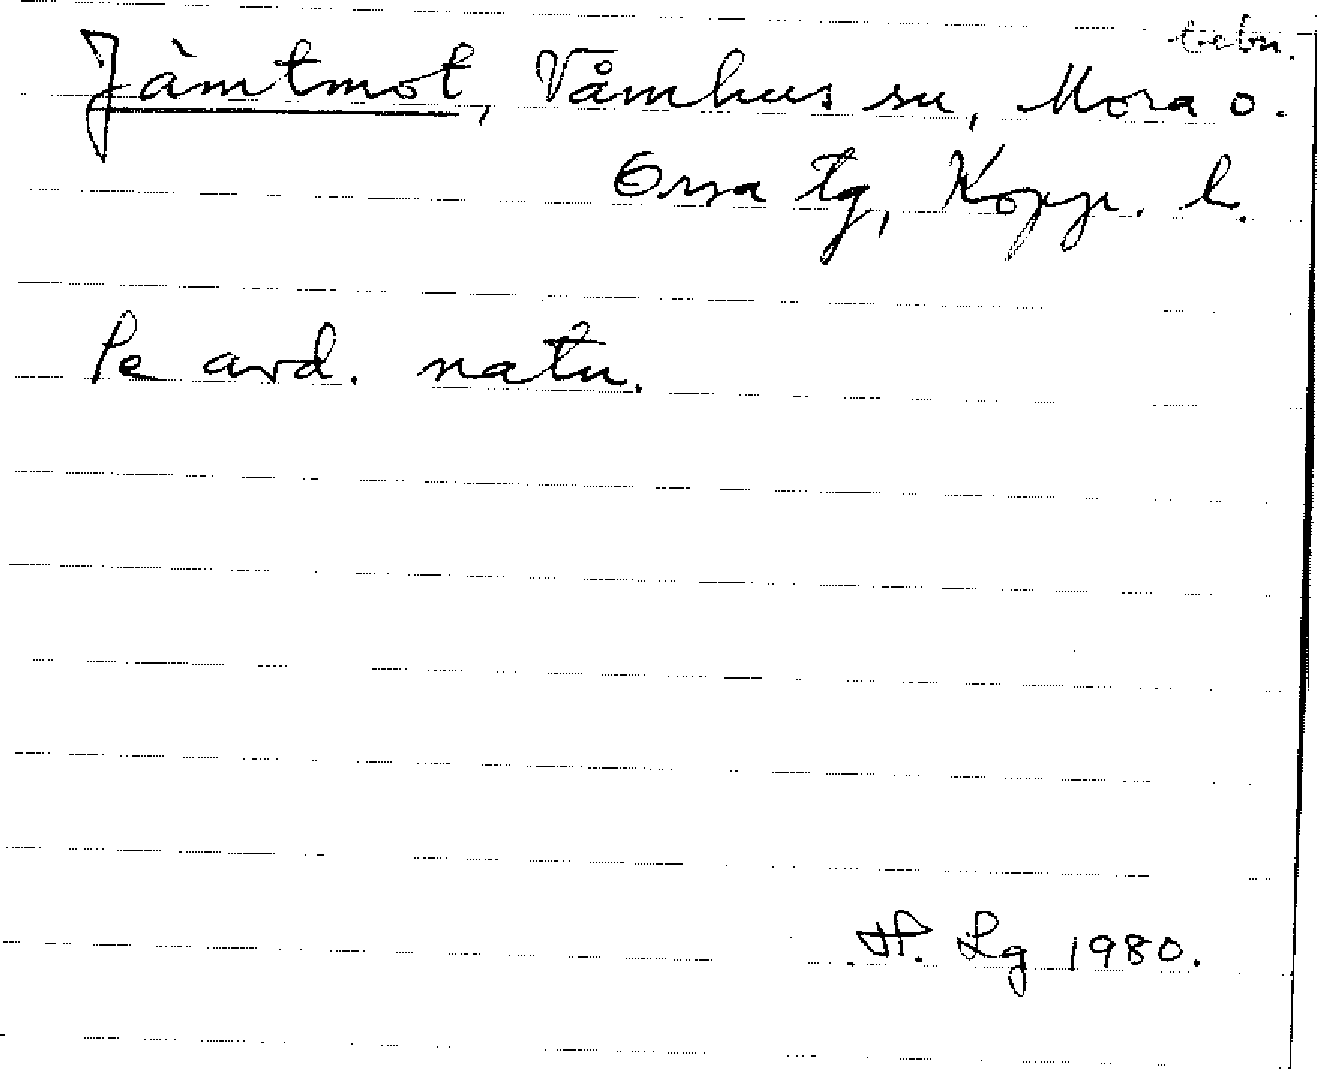 tebn.
Jàmtmot, Våmhus sn, Mora o.
Orsa tg, Kopp. l.
Se avd. natn.
H. Lg 1980.